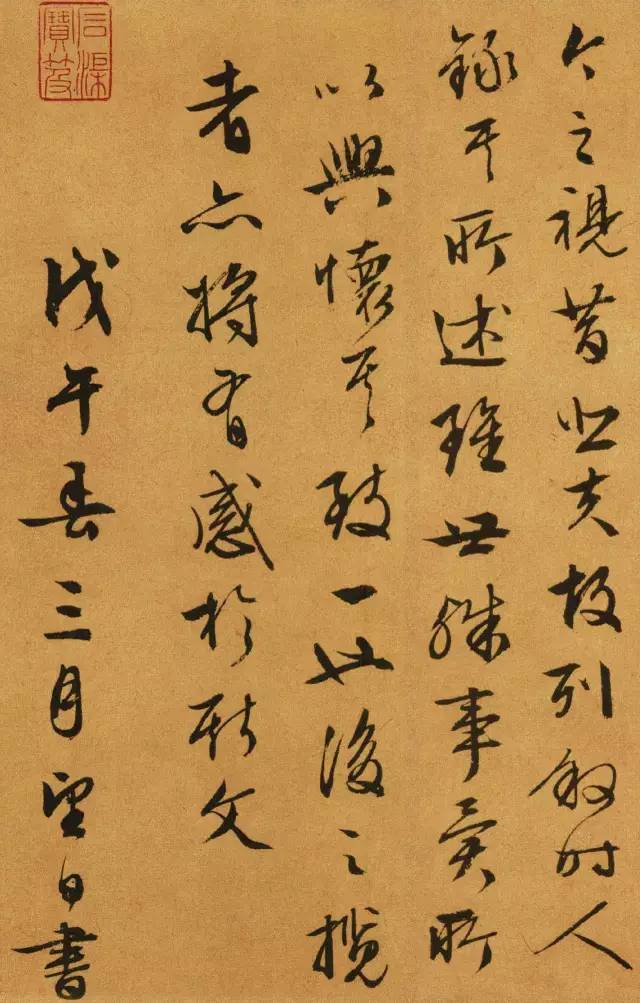 今之視昔悲夫故列叙時人
錄其所述雖世殊事異所
以興懷其致一也後之攬
者亦將有感於斯文
戊午春三月望日書
石渠
寶笈